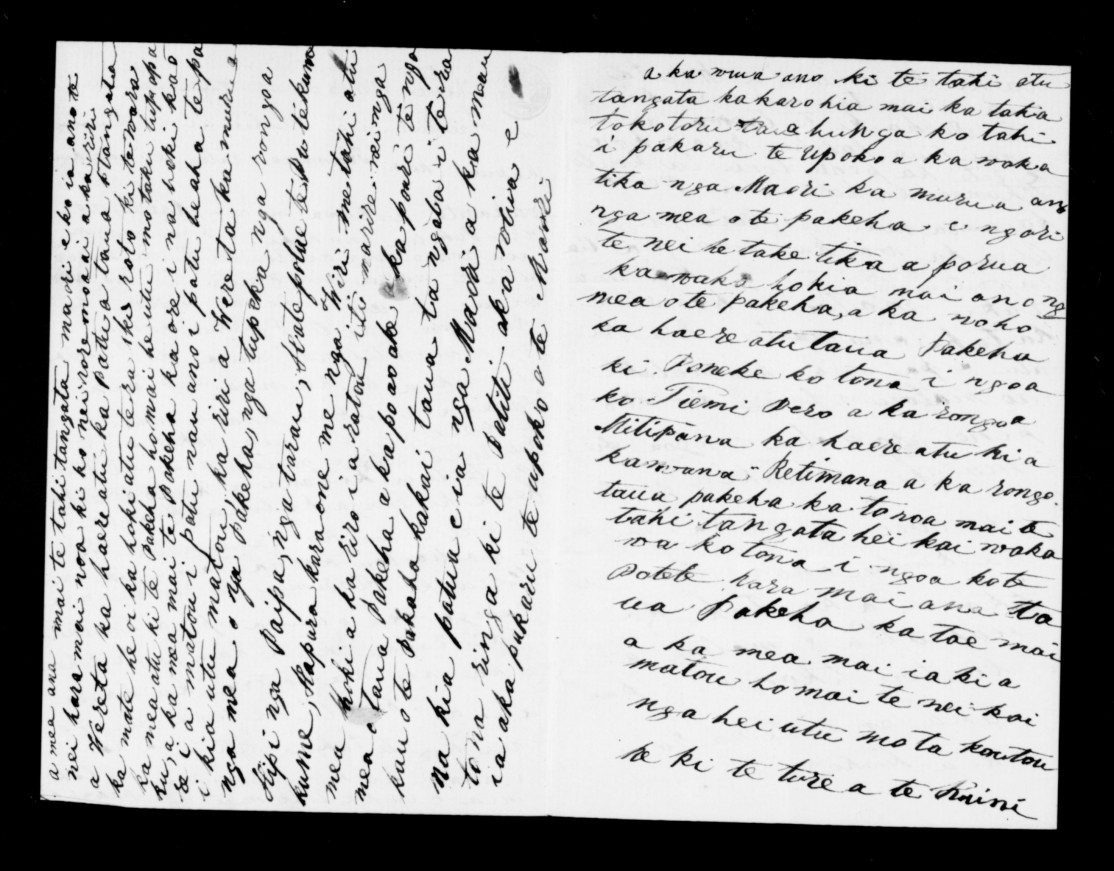 a mea ana mai te tahi tangata mau e ko ia ano te
nei hara mai noa ki ko nei rore mai ai a kauriri
a Wereta ka haere atu ka patu a taua tangata
ka mate heoi ka hoki atu te ra ki roto ki to wara
ka mea atu ki te Pakeha homai he utu mo taku tupapa
ku, a ka mea mai te Pakeha kaore i na hoki kao
re i a matou i patu nau ano i patu heaha te pa
i kia utu matou, ka riri a Wereta ka murua
nga mea o nga Pakeha, nga tupeka nga rongoa
tipi nga Paipa, nga tarau,
kume, Kapura karaone me nga Wiri me tahi atu
mea hoki a ka riro i a ratou i te marire mai nga
mea o taua Pakeha a ka po ao ake a ka pouri te nga
kau o te Pakeha kakai taua ta ngata i te ra
na kia patua e ia nga Maori a ka mau
to na ringa ki te Petiti aka whiua e
ia aka pukaru te upoko o te Maori
aka wua ano ki te tahi atu
tangata kakarohia mai ka tahia
tokotoru taua hunga ko tahi
i pakaru te upoko a ka waka
tika nga Maori ka murua ano
nga mea o te pakeha e ngari
te nei he take tika a po rua
ka waka hokia mai ano ng
mea o te pakeha, a ka noho
ka haere atu taua Pakeha
ki Poneke ko tona i ngoa
ko Tiemi Pero a ka rongo a
Mitipana ka haere atu ki a
kawana Retimana a ka rongo
taua pakeha ka to noa mai te
tahi tangata hei kai waka
wa ko tona i ngoa ko te
Potete hara mai ana ta
ua Pakeha ka tae mai
a ka mea mai ia ki a
matou ho mai te nei kai
nga hei utu mo ta koutou
he ki te ture a te Kuini